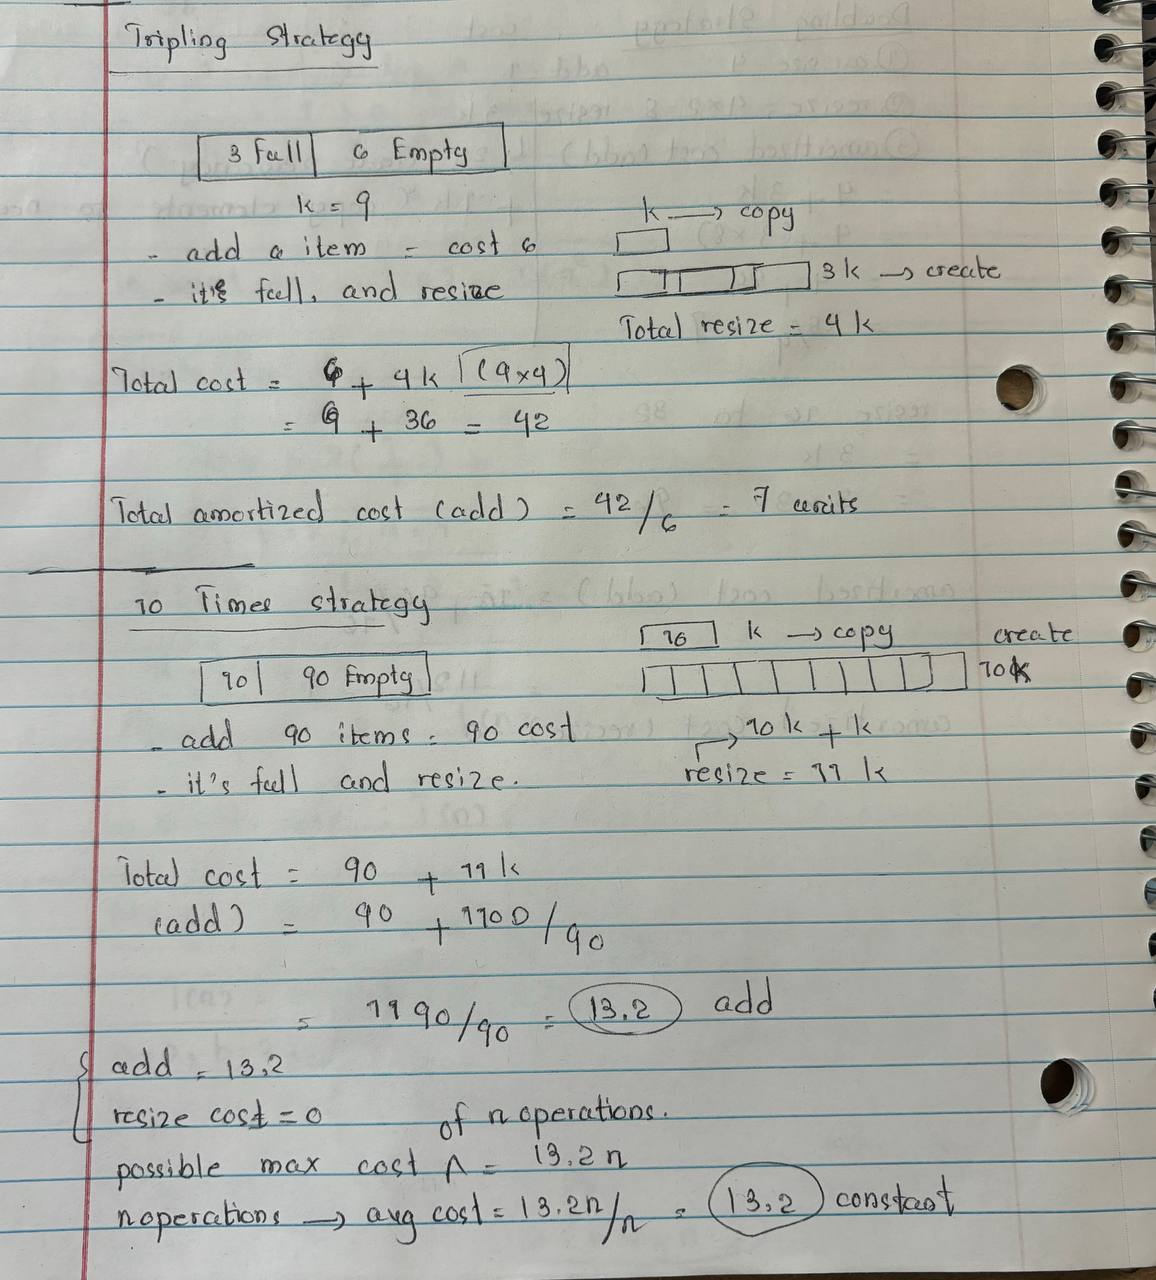 Tripling Strategy
3 full 6 Empty
k = 9
k → copy
- add a item = cost 6
3k → create
- it's full, and resize
Total resize = 4k
Total cost = 6 + 4k (9x4)
= 6 + 36 = 42
Total amortized cost (add) = 42/6 = 7 units
10 Times strategy
k → copy create
10 90 Empty
10k
- add 90 items = 90 cost
→ 10k + k
- it's full and resize.
resize = 11k
Total cost = 90 + 11k
(add) = 90 + 1100/90
= 1190/90 = 13.2 add
add = 13.2
resize cost = 0
of n operations.
possible max cost ^ = 13.2n
n operations → avg cost = 13.2n/n = 13.2 constant